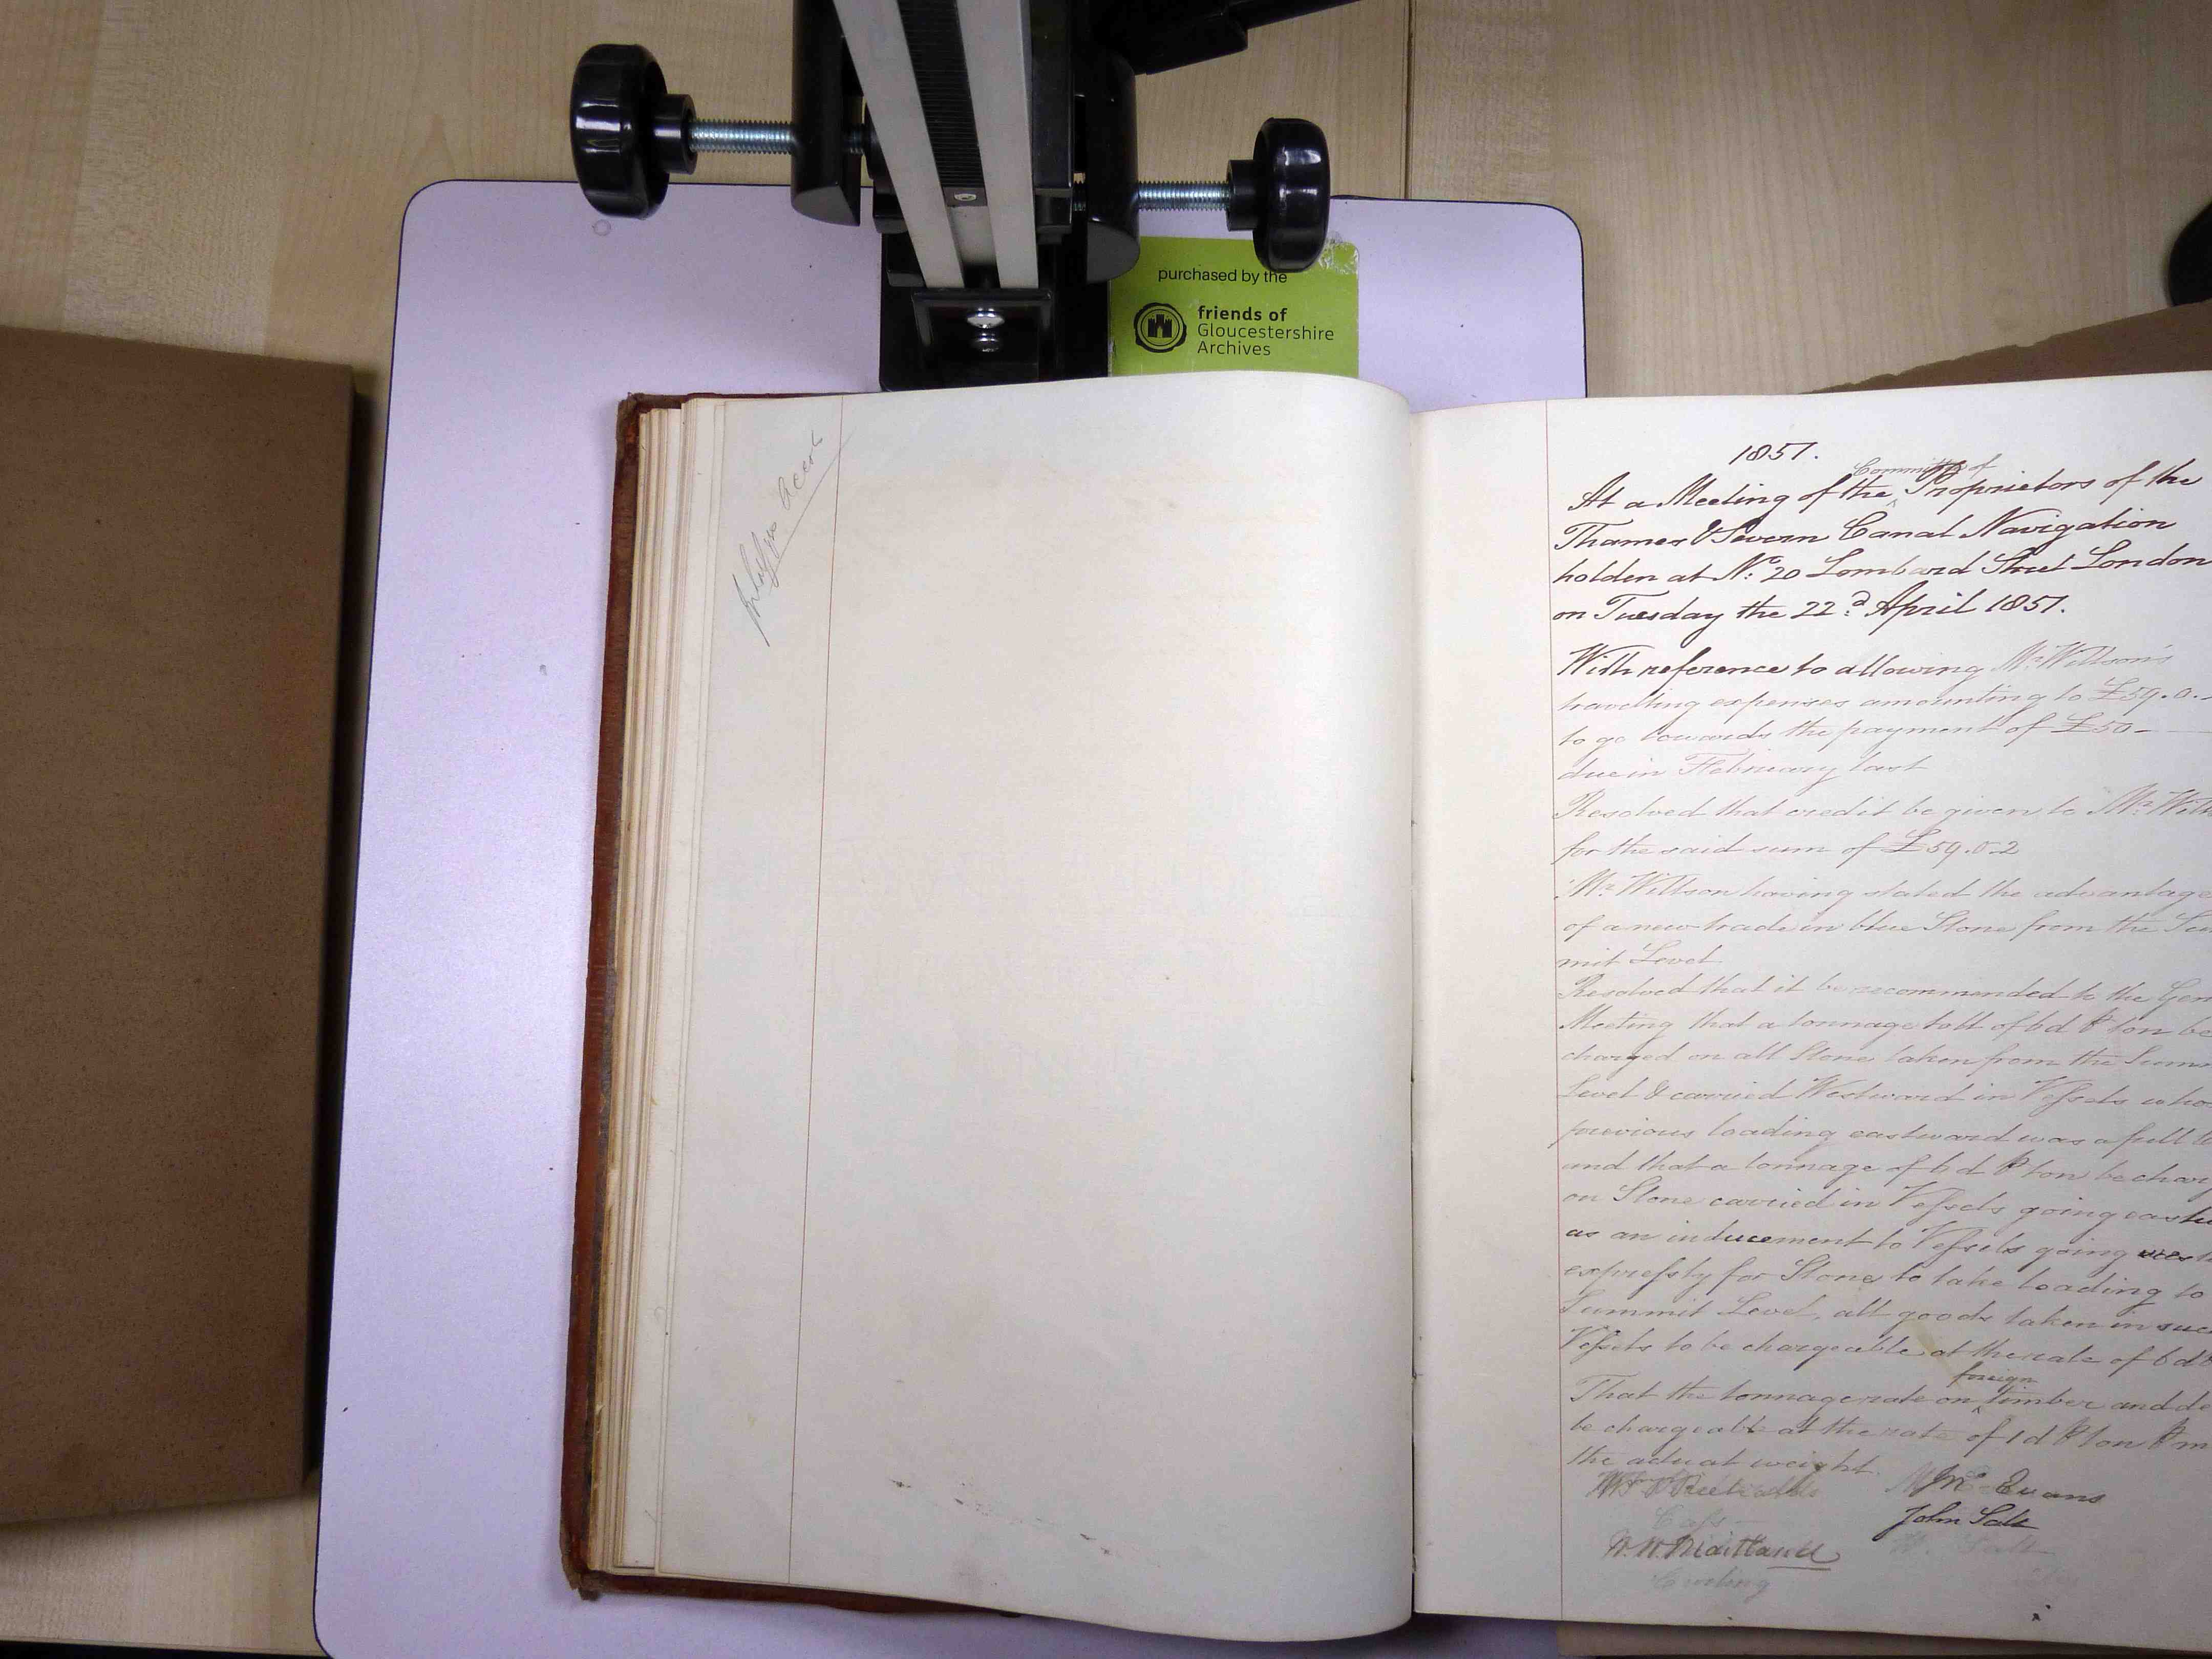 purchased by the
friends of
Gloucestershire
Archives
1851.
Committee of
At a Meeting of the Proprietors of the
Thames & Severn Canal Navigation
holden at No: 20 Lombard Street London
on Tuesday the 22d April 1851.
With reference to allowing Mr. Willson's
travelling expenses amounting to £59.0.
to go towards the payment of £50-
due in February last
Resolved that credit be given to Mr. Will
for the said sum of £59.0.2
Mr. Willson having stated the advantage
of a new trade in blue Stone from the Sum
mit Level
Resolved that it be recommended to the Gen
Meeting that a tonnage toll of 6d ⅌ ton be
charged on all Stone taken from the Summ
Level & carried Westward in Vessels who
previous loading eastward was a full
and that a tonnage of 6d ⅌ ton be char
on Stone carried in Vessels going eastw
as an inducement to Vessels going west
expressly for Stone to take loading to
Summit Level, all goods taken in suc
Vessels to be chargeable at the rate of 6d
foreign
That the tonnage rate on timber and de
be chargeable at the rate of 1d ⅌ ton ⅌ m
the actual weight.
Evans
John Salt
W. W. Maitland